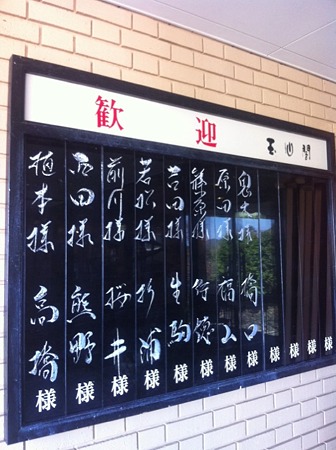 歓迎 玉山閣
様
様
様
様
橋口 様
原田様 福山 様
藤原様 行徳 様
吉田様 生駒 様
若松様 杉浦 様
前川様 桜井 様
西田様 熊野 様
植本様 高橋 様